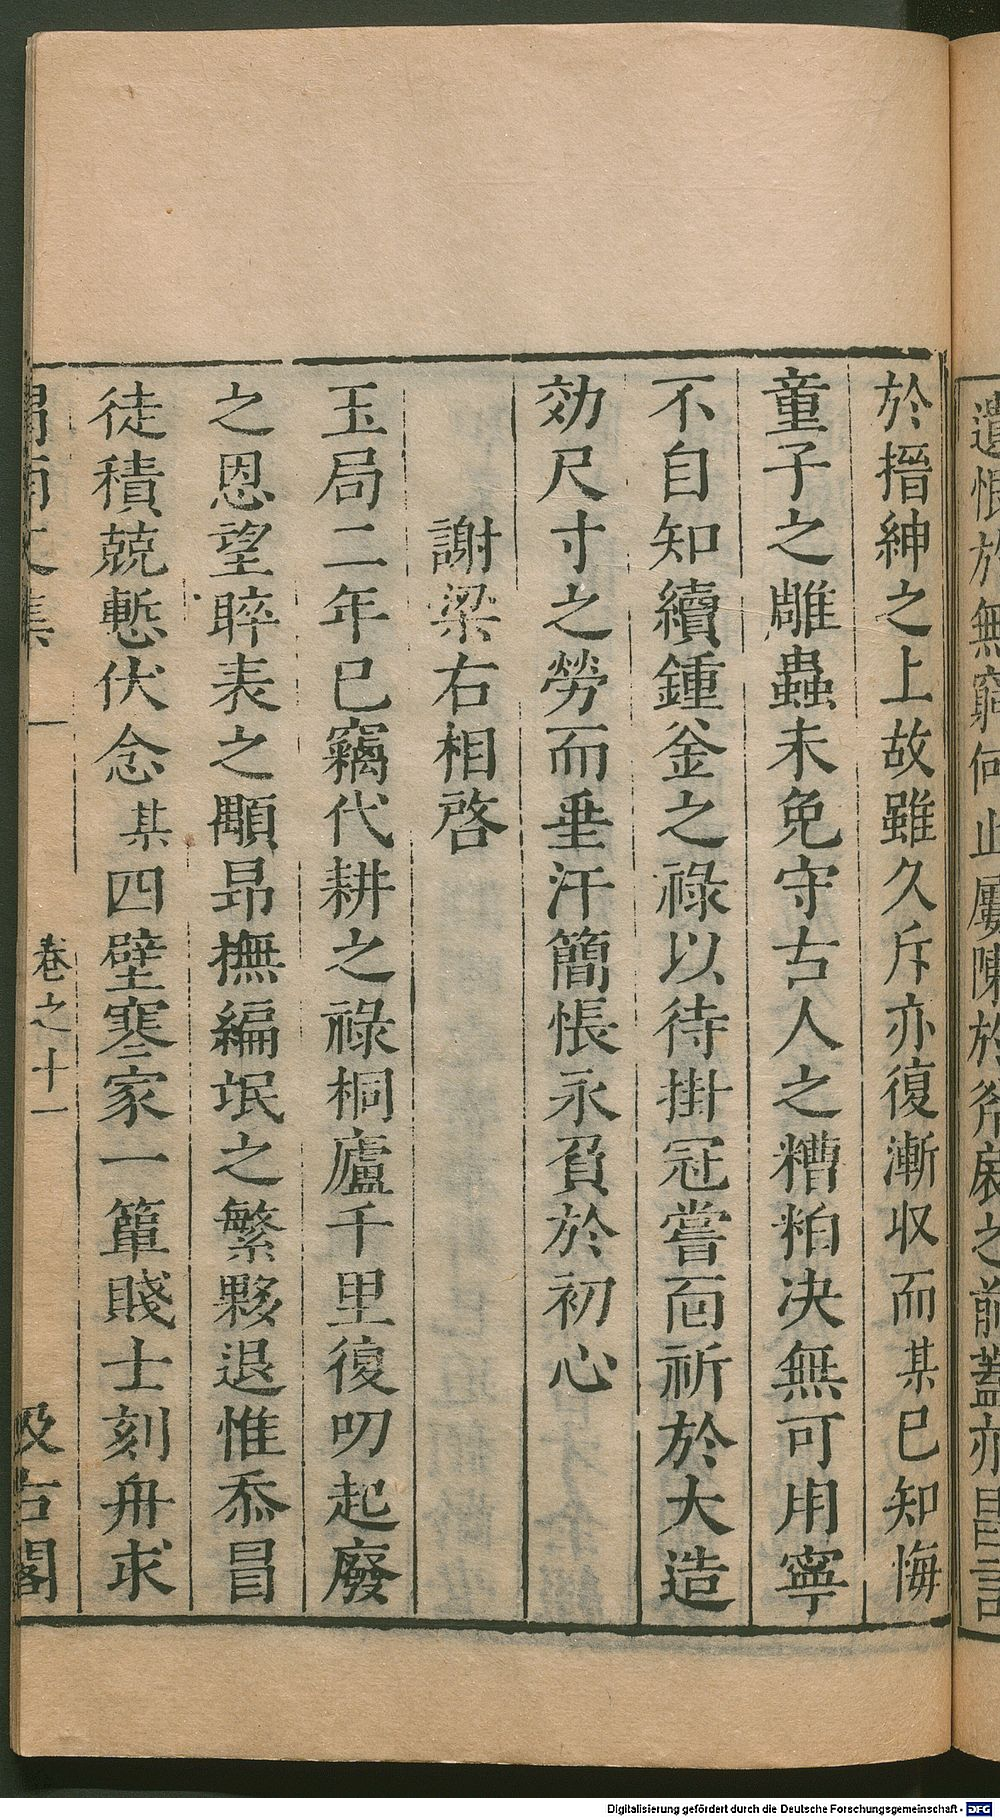 遺恨於無窮何止屢陳於
之前蓋亦
於搢紳之上故雖久斥亦復漸収而某已知悔
童子之雕蟲未免守古人之糟粕决無可用寧
不自知續鍾釡之祿以待掛冠嘗靣祈於大造
効尺寸之勞而垂汗簡悵永負於初心
謝梁右相啓
玉局二年已竊代耕之祿桐廬千里復叨起廢
之恩望睟表之顒昂撫編氓之繁夥退惟忝冒
徒積兢慙伏念某四壁寒家一簞賤士刻舟求
渭南文集
卷之十一
汲古閣
Digitalisierung gefördert durch die Deutsche Forschungsgemeinschaft - DFG